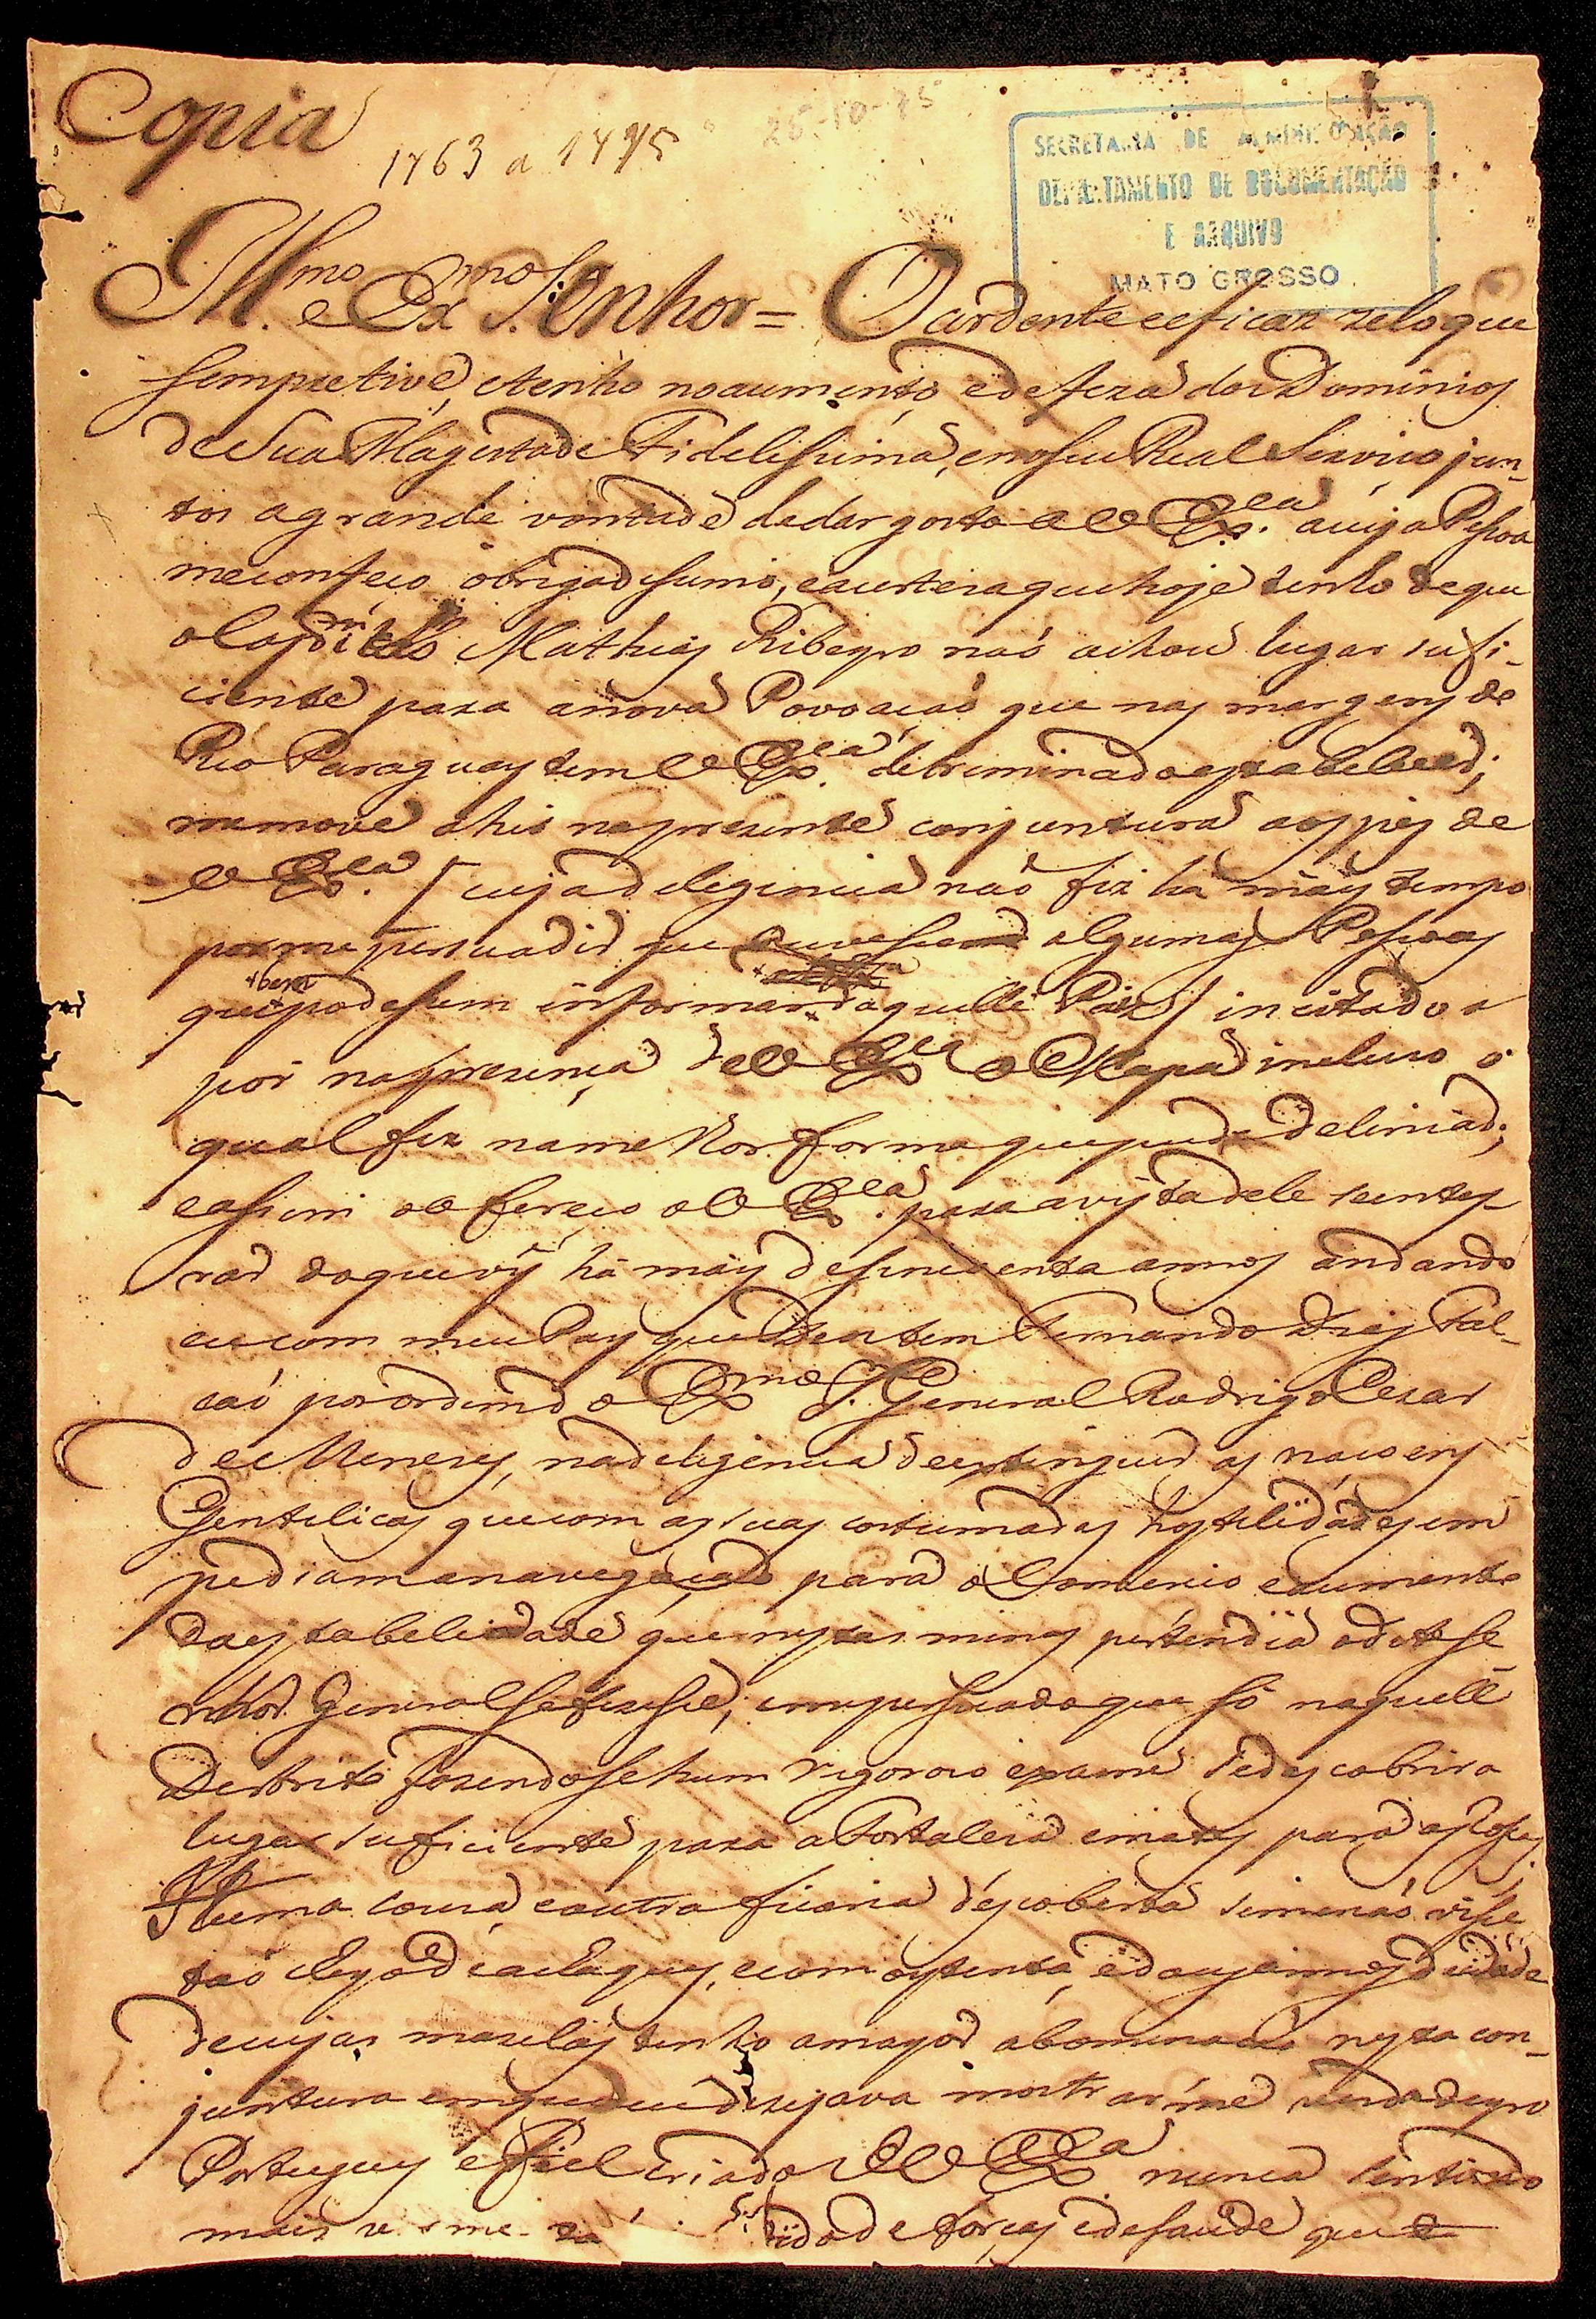 Copia
1763 a 1775
25-10-75
SECRETARIA DE ADMINISTRAÇÃO
DEPARTAMENTO DE DOCUMENTAÇÃO
E ARQUIVO
MATO GROSSO
Ill.mo e Ex.mo S. Senhor = O ardente e eficaz zelo que
sempre tive, e tenho no aumento, e defeza dos Dominios
de Sua Magestade Fidelissima, e no seu Real Servico jun-
tos a grande vontade de dar gosto a V Ex.cia a cuja Pesoa
me confeço obrigadisimo, e a certeza que hoje tenho de que
o Mathias Ribeyro naó achou lugar sufi-
ciente para a nova Povoacaó que nas margens de
Rio Paraguay tem V Ex.cia detriminado estabelecer;
me move a hir na prezente conjuntura aos pés de
V Ex.cia / cuja deligencia naó fiz há mais tempo
por me persuadir que ouvesse algumas Pesoas
que +bem podessem informar daquelle Paiz / incitado a
pór na prezença de V Ex.cia o Mapa incluzo o
qual fiz na melhor forma que pude deliniar;
e assim o ofereço a V Ex.cia para a vista dele se intey-
rar do que vy há mais de sincoenta annos andando
eu com meu Pay que Deos tem Fernando Dias Fal-
caó por ordem do Ex.mo S. General Rodrigo Cezar
de Menezes, na deligencia de extinguir as naçoens
Gentilicas que com as suas costumadas hostelidades im
pediam a navegaçaó para o Comercio e aumento
da estabelidade que nestas minas pertendia o dito Se-
nhor General se fizesse; e me persuado que só naquelle
Destrito fazendose hum rigorozo exame se descobrira
lugar suficiente para a Fortaleza e matos para as Rosas;
Huma couza, e outra ficaria descoberta se me naó visse
taó chegado a achaques, e com oytenta, e dous annos de idade
de cujas mazelas tenho a mayor abominaçaó nesta con-
juntura em que eu dezejava mostrarme verdadeyro
Portuguez e fiel criado de V Ex.cia nunca sentindo
mais ver me de forças e de saude que